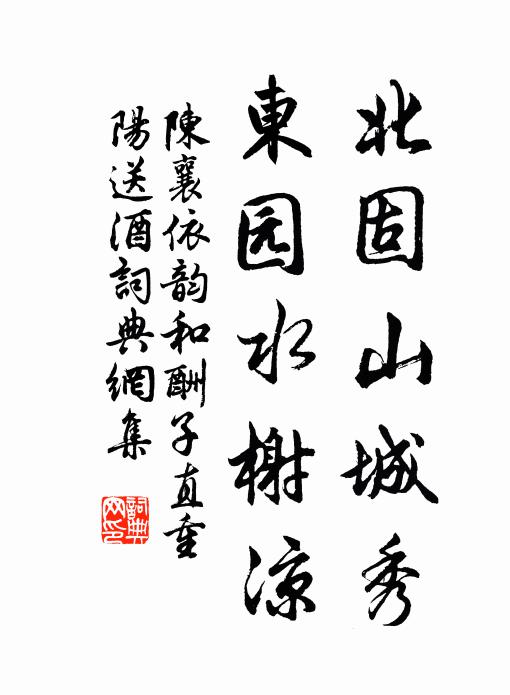 北固山城秀
東园水榭凉
陳襄依韵和酬子直重
陽送酒詞典網集
詞典
网印